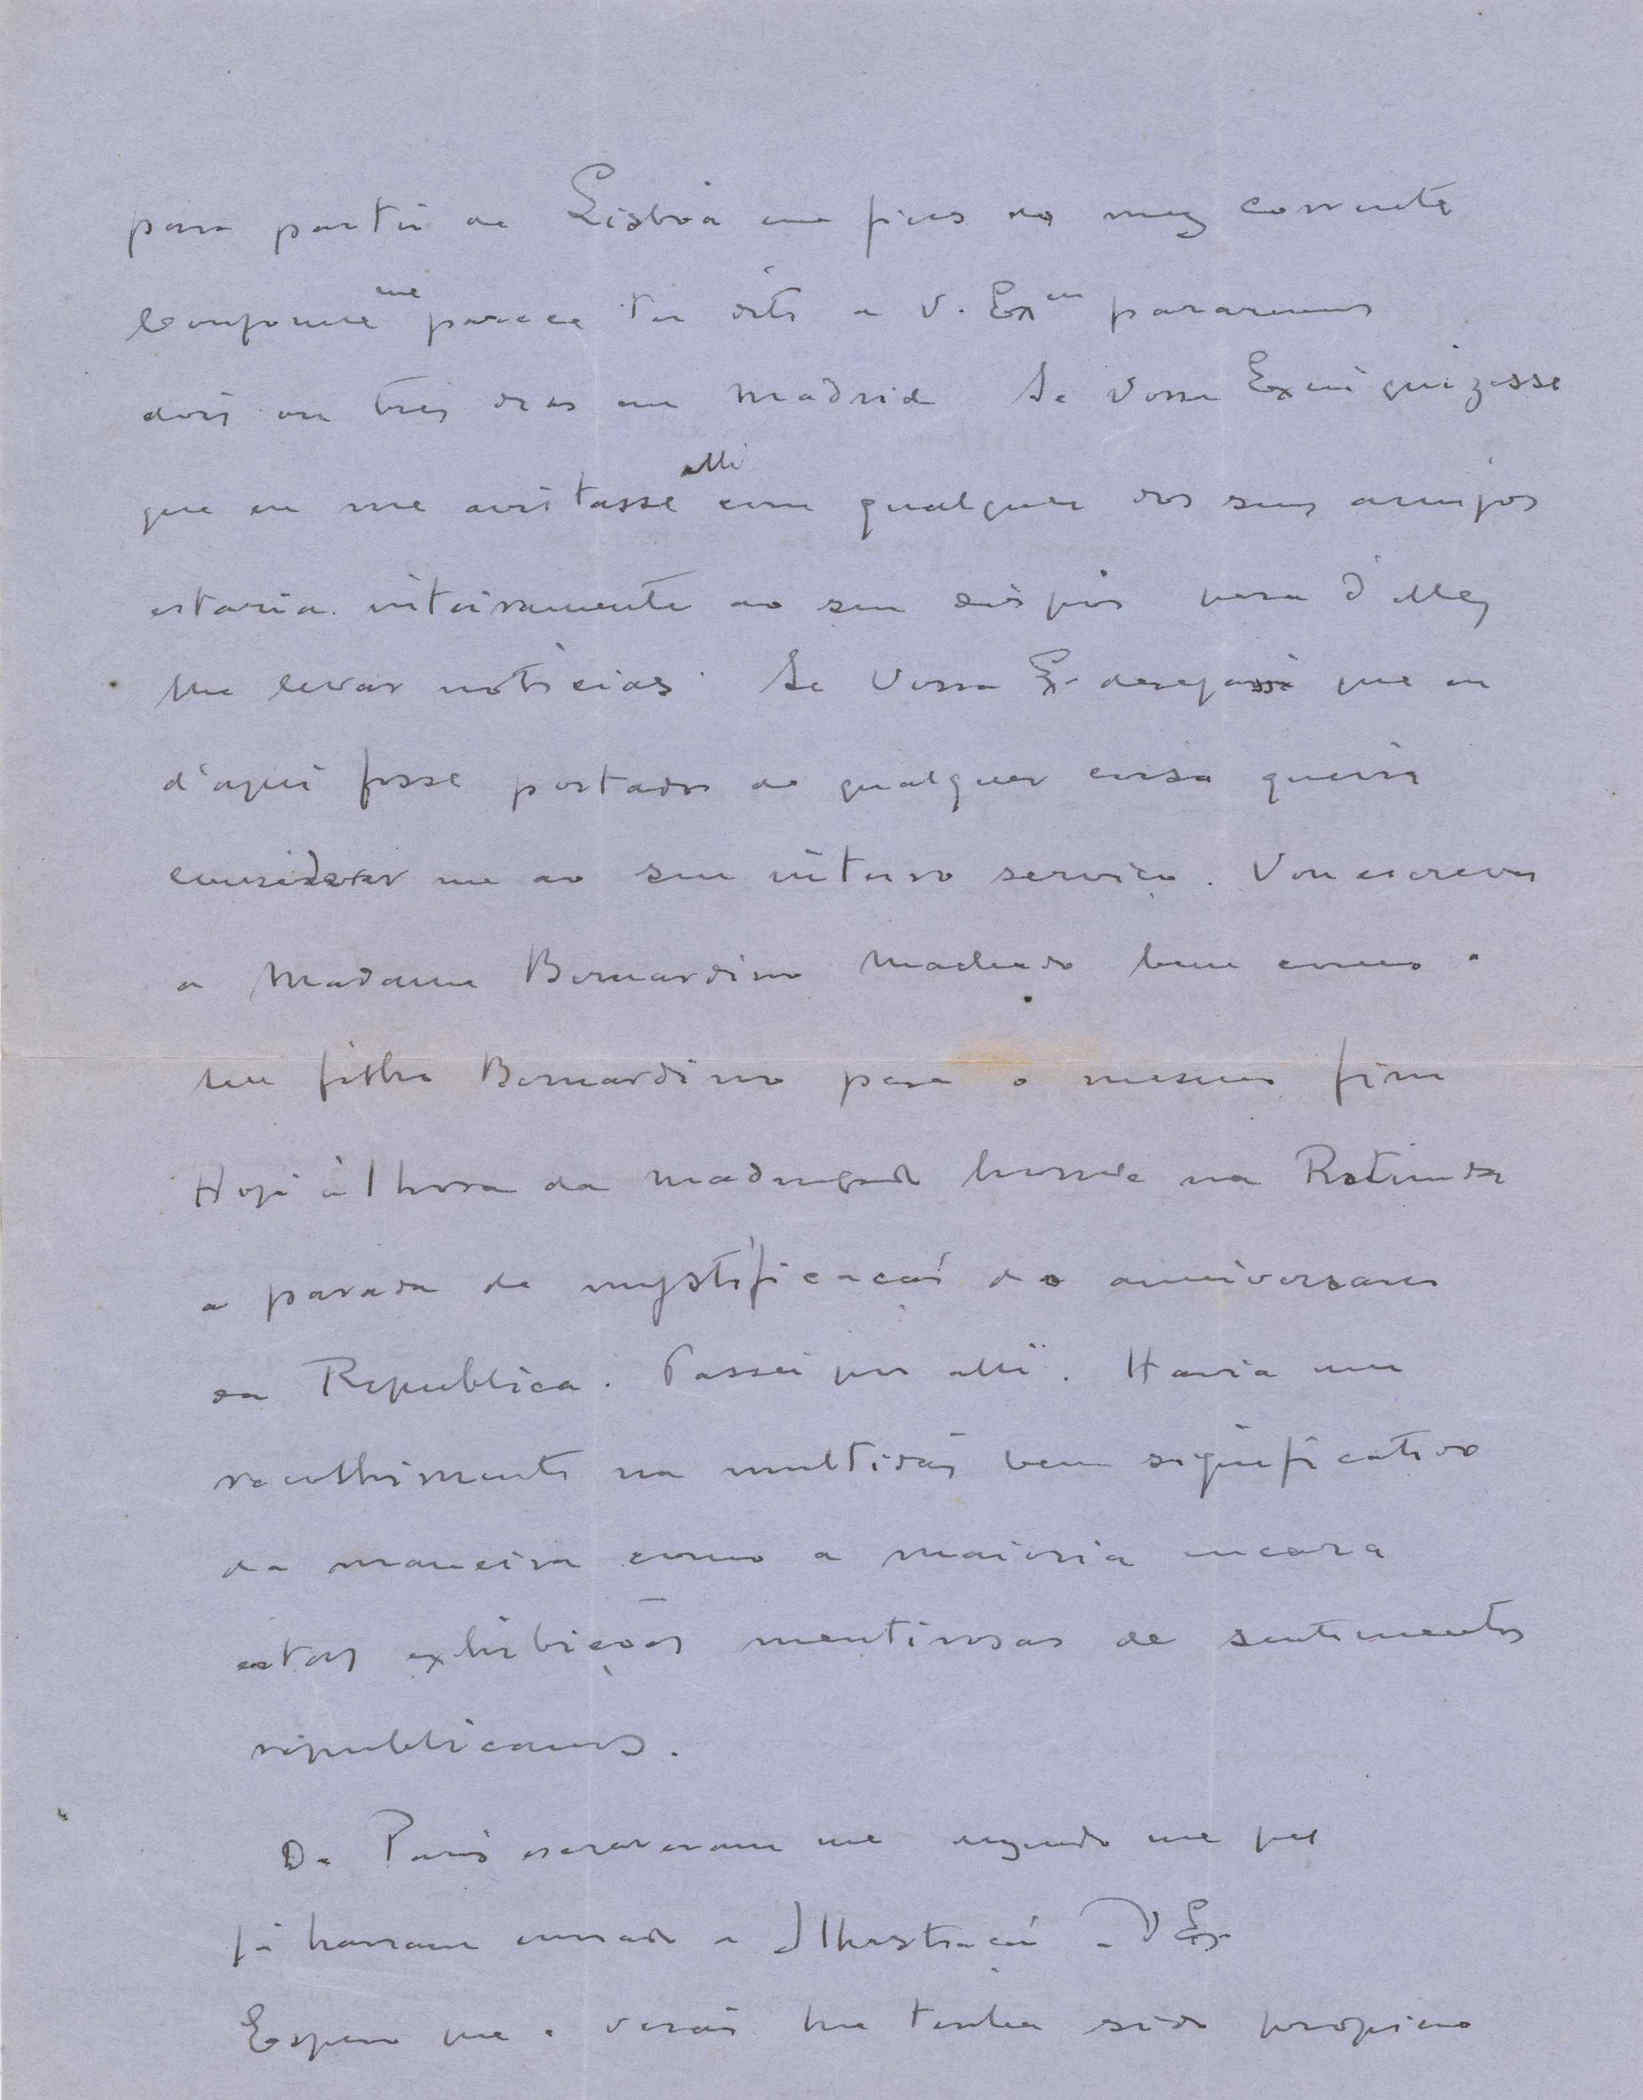 para partir de Lisboa em fins do mez corrente
Conforme me parece ter dito a V. Exª pararemos
dois ou tres dias em Madrid Se Vossa Exciª quizesse
que eu me avistasse alli com qualquer dos seus amigos
estaria inteiramente ao seu dispôr para d'elles
lhe levar noticias. Se Vossa Ex. desejasse que eu
d'aqui fosse portador de qualquer coisa queira
considerar me ao seu inteiro serviço. Vou escrever
a Madame Bernardino Machado bem como a
seu filho Bernardino para o mesmo fim
Hoje á 1 hora da madrugada houve na Rotunda
a parada de mystificação do anniversario
da Republica. Passei por alli. Havia um
recolhimento na multidão bem significativo
da maneira como a maioria encara
estas exhibições mentirosas de sentimentos
republicanos.
De Paris escreveram me dizendo me que
já haviam enviado a Illustração a V Ex.
Espero que o verão lhe tenha sido propicio